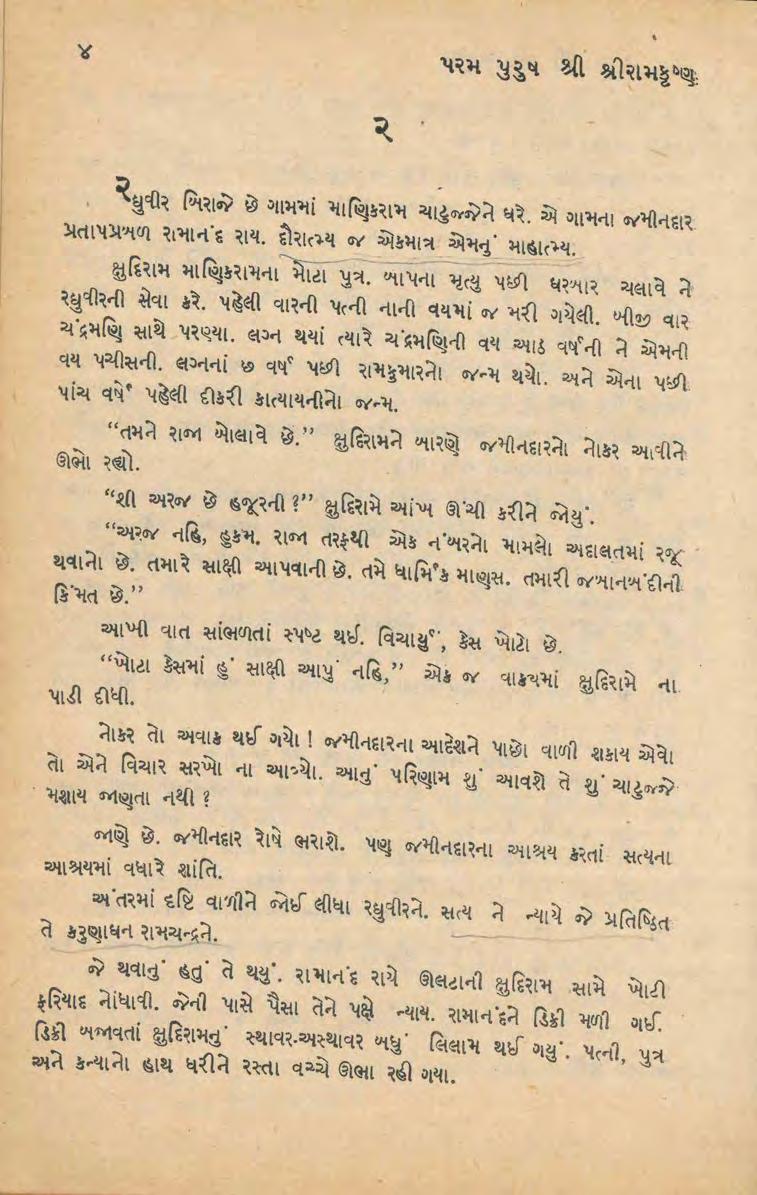 ૪
પરમ પુરુષ શ્રી શ્રીરામકૃષ્ણ:
૨
રઘુવીર બિરાજે છે ગામમાં માણિકરામ ચાટુજ્જેને ઘરે. એ ગામના જમીનદાર
પ્રતાપપ્રબળ રામાનંદ રાય. દૌરાત્મ્ય જ એકમાત્ર એમનું માહાત્મ્ય.
ક્ષુદિરામ માણિકરામના મોટા પુત્ર. બાપના મૃત્યુ પછી ઘરબાર ચલાવે ને
રઘુવીરની સેવા કરે. પહેલી વારની પત્ની નાની વયમાં જ મરી ગયેલી. બીજી વાર
ચંદ્રમણિ સાથે પરણ્યા. લગ્ન થયાં ત્યારે ચંદ્રમણિની વય આઠ વર્ષની ને એમની
વય પચીસની. લગ્નનાં છ વર્ષ પછી રામકુમારનો જન્મ થયો. અને એના પછી
પાંચ વર્ષે પહેલી દીકરી કાત્યાયનીનો જન્મ.
“તમને રાજા બોલાવે છે.” ક્ષુદિરામને બારણે જમીનદારનો નોકર આવીને
ઊભો રહ્યો.
“શી અરજ છે હજૂરની ?” ક્ષુદિરામે આંખ ઊંચી કરીને જોયું.
“અરજ નહિ, હુકમ. રાજા તરફથી એક નંબરનો મામલો અદાલતમાં રજૂ
થવાનો છે. તમારે સાક્ષી આપવાની છે. તમે ધાર્મિક માણસ. તમારી જબાનબંદીની
કિંમત છે.”
આખી વાત સાંભળતાં સ્પષ્ટ થઈ. વિચાર્યું, કેસ ખોટો છે.
“ખોટા કેસમાં હું સાક્ષી આપું નહિ,” એક જ વાક્યમાં ક્ષુદિરામે ના
પાડી દીધી.
નોકર તો અવાક થઈ ગયો ! જમીનદારના આદેશને પાછો વાળી શકાય એવો
તો એને વિચાર સરખો ના આવ્યો. આનું પરિણામ શું આવશે તે શું ચાટુજ્જે
મશાય જાણતા નથી ?
જાણે છે. જમીનદાર રોષે ભરાશે. પણ જમીનદારના આશ્રય કરતાં સત્યના
આશ્રયમાં વધારે શાંતિ.
અંતરમાં દૃષ્ટિ વાળીને જોઈ લીધા રઘુવીરને. સત્ય ને ન્યાયે જે પ્રતિષ્ઠિત
તે કરુણાઘન રામચન્દ્રને.
જે થવાનું હતું તે થયું. રામાનંદ રાયે ઊલટાની ક્ષુદિરામ સામે ખોટી
ફરિયાદ નોંધાવી. જેની પાસે પૈસા તેને પક્ષે ન્યાય. રામાનંદને ડિક્રી મળી ગઈ.
ડિક્રી બજાવતાં ક્ષુદિરામનું સ્થાવર-અસ્થાવર બધું લિલામ થઈ ગયું. પત્ની, પુત્ર
અને કન્યાનો હાથ ધરીને રસ્તા વચ્ચે ઊભા રહી ગયા.